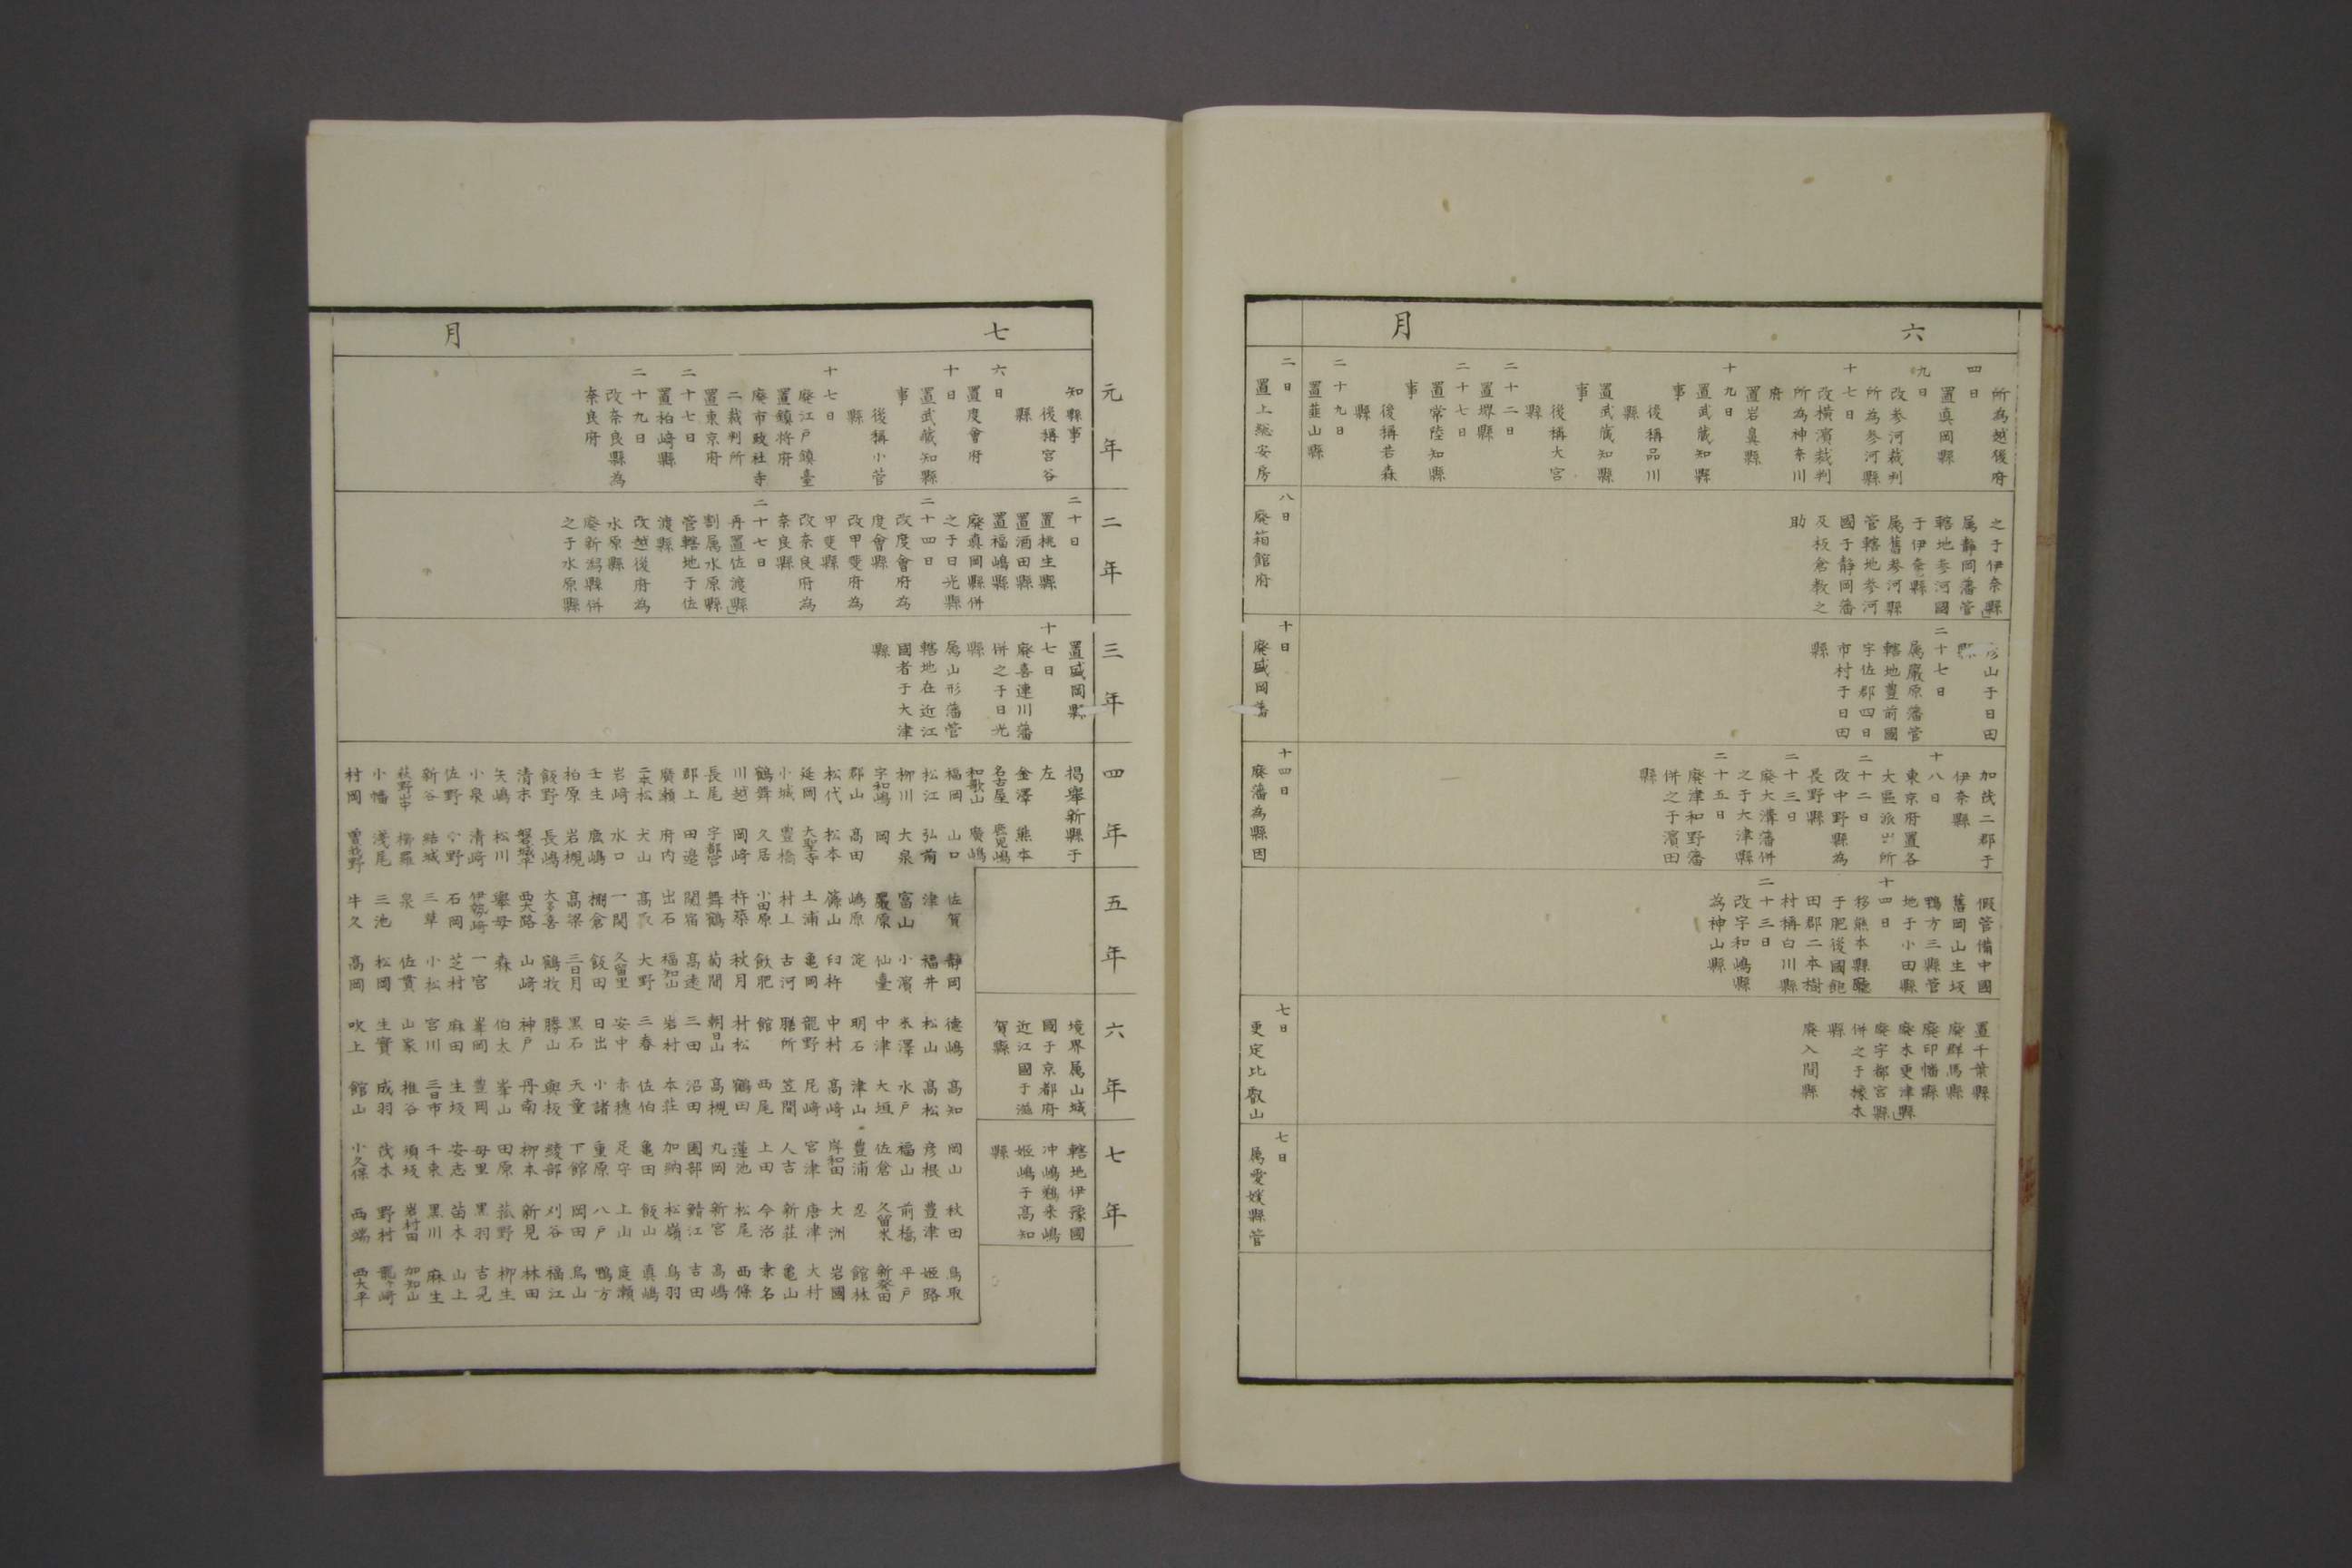 六月
所為越後府
四日
置真岡縣
九日
改参河裁判
所為参河縣
十七日
改横濱裁判
所為神奈川
府
置岩鼻縣
十九日
置武蔵知縣
事
後稱品川
縣
置武蔵知縣
事
後稱大宮
縣
二十二日
置堺縣
二十七日
置常陸知縣
事
後稱若森
縣
二十九日
置韮山縣
之于伊奈縣」
属静岡藩管
轄地参河國
于伊奈縣
属舊参河縣
管轄地参河
國于静岡藩
及板倉教之
助
山于日田
縣
二十七日
属嚴原藩管
轄地豊前國
宇佐郡四日
市村于日田
縣
加茂二郡于
伊奈縣
十八日
東京府置各
大區派出所
二十二日
改中野縣為
長野縣
二十三日
廃大溝藩併
之于大津縣
二十五日
廃津和野藩
併之于濱田
縣
假管備中國
舊岡山生坂
鴨方三縣管
地于小田縣
十四日
移熊本縣廳
于肥後國飽
田郡二本樹
村稱白川縣
二十三日
改宇和嶋縣
為神山縣
置千葉縣
廃群馬縣
廃印幡縣
廃木更津縣」
廃宇都宮縣
併之于橡木
縣
廃入間縣
二日
置上総安房
八日
廃箱館府
十日
廃盛岡藩
十四日
廃藩為縣因
七日
更定比叡山
七日
属愛媛縣管
元年
二年
三年
四年
五年
六年
七年
七月
知縣事
後稱宮谷
縣
六日
置度會府
十日
置武蔵知縣
事
後稱小菅
縣
十七日
廃江戸鎮臺
置鎮将府
廃市政社寺
二裁判所
置東京府
二十七日
置柏﨑縣
二十九日
改奈良縣為
奈良府
二十日
置桃生縣
置酒田縣
置福嶋縣
廃真岡縣併
之于日光縣
二十四日
改度會府為
度會縣
改甲斐府為
甲斐縣
改奈良府為
奈良縣
二十七日
再置佐渡縣」
割属水原縣
管轄地于佐
渡縣
改越後府為
水原縣
廃新潟縣併
之于水原縣
置盛岡縣
十七日
廃喜連川藩
併之于日光
縣
属山形藩管
轄地在近江
國者于大津
縣
揭舉新縣于
左
金澤 熊本
名古屋 鹿児嶋
和歌山 廣嶋
境界属山城
國于京都府
近江國于滋
賀縣
轄地伊豫國
沖嶋鵜来嶋
姫嶋于高知
縣
福岡 山口 佐賀 静岡 徳嶋 高知 岡山 秋田 鳥取
松江 弘前 津 福井 松山 高松 彦根 豊津 姫路
柳川 大泉 富山 小濱 米澤 水戸 福山 前橋 平戸
宇和嶋 岡 嚴原 仙臺 中津 大垣 佐倉 久留米 新發田
郡山 高田 嶋原 淀 明石 津山 豊浦 忍 館林
松代 松本 篠山 臼杵 中村 高﨑 岸和田 大洲 岩國
延岡 大聖寺 土浦 亀岡 龍野 尼﨑 宮津 唐津 大村
小城 豊橋 村上 古河 膳所 笠間 人吉 新莊 亀山
鶴舞 久居 小田原 飫肥 館 西尾 上田 今治 桑名
川越 岡﨑 杵築 秋月 村松 鶴田 蓮池 松尾 西條
長尾 宇都宮 舞鶴 菊間 朝日山 高槻 丸岡 新宮 高嶋
郡上 田邉 関宿 高遠 三田 沼田 園部 鯖江 吉田
廣瀬 府内 出石 福知山 岩村 本莊 加納 松嶺 鳥羽
二本松 犬山 高取 大野 三春 佐伯 亀田 飯山 真嶋
岩﨑 水口 一関 久留里 安中 赤穂 足守 上山 庭瀬
壬生 鹿嶋 棚倉 飯田 日出 小諸 重原 八戸 鴨方
柏原 岩槻 高梁 三日月 黒石 天童 下館 岡田 烏山
飯野 長嶋 大多喜 鶴牧 勝山 與板 綾部 刈谷 福江
清末 磐城平 西大路 山﨑 神戸 丹南 柳本 新見 林田
矢嶋 松川 擧母 森 伯太 峯山 田原 菰野 柳生
小泉 清﨑 伊勢﨑 一宮 峯岡 豊岡 母里 黒羽 吉見
佐野 小野 石岡 芝村 麻田 生坂 安志 苗木 山上
新谷 結城 三草 小松 宮川 三日市 千束 黒川 麻生
荻野山中 櫛羅 泉 佐貫 山家 椎谷 須坂 岩村田 加知山
小幡 淺尾 三池 松岡 生實 成羽 茂木 野村 龍ヶ﨑
村岡 曽我野 牛久 高岡 吹上 館山 小久保 西端 西大平